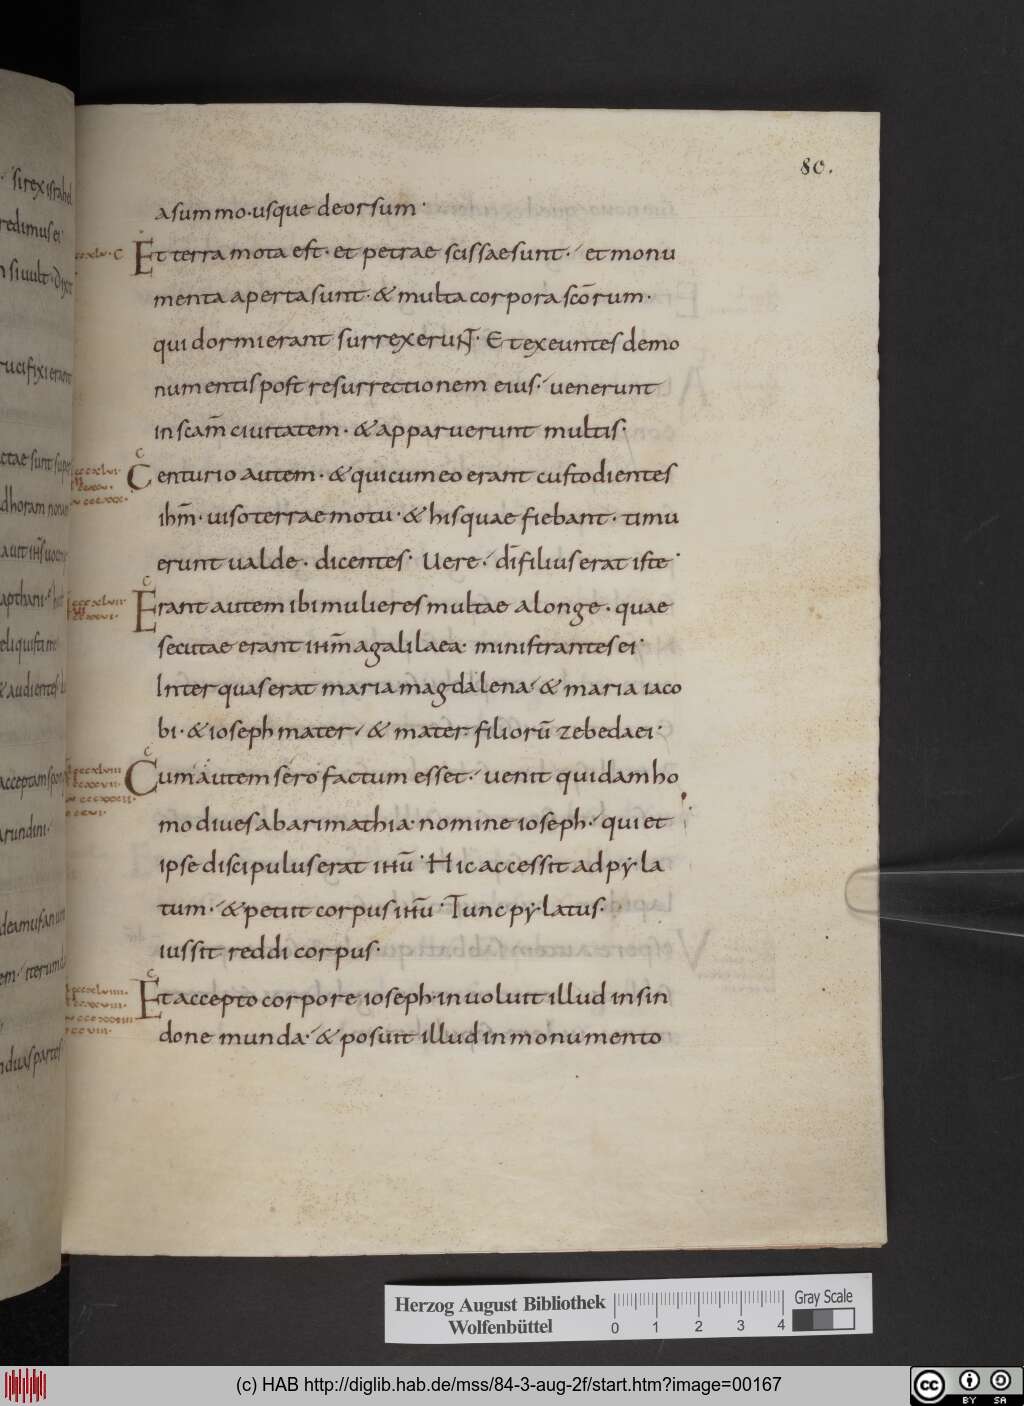 80.
asummo·usque deorsum·
Et terra mota est· et petrae scissaesunt·/ et monu
menta apertasunt·& multa corpora scōrum·
qui dormierant surrexeruNT· Et exeuntes demo
numentis post resurrectionem eius·/ uenerunt
in scam̄ ciuitatem·&apparuerunt multis·
Centurio autem·&quicum eo erant custodientes
ihm̄·uiso terrae motu·& his quae fiebant· timu
erunt ualde· dicentes· Uere·/ dī filius erat iste·
Erant autem ibi mulieres multae alonge· quae
secutae erant ihm̄ agalilaea· ministrantes ei·
Inter quas erat maria magdalena·/& maria iaco
bi·& ioseph mater·/& mater filiorū zebedaei·
Cum autem sero factum esset·/ uenit quidam ho
mo diues abarimathia·nomine ioseph·/ qui et
ipse discipulus erat ihū· Hic accessit ad pẏla
tum·/&petiit corpus ihū· Tunc pẏlatus·
iussit reddi corpus·
Et accepto corpore ioseph·inuoluit illud insin
done munda·/&posuit illud in monumento
si rex israhel
redimus ei
si uult· Dixit
crucifixi erant
ad horam nonam
& audientes
acceptam spon
arundini·
Herzog August Bibliothek
Wolfenbüttel
0 1 2 3 4
Gray Scale
(c) HAB http://diglib.hab.de/mss/84-3-aug-2f/start.htm?image=00167
cc BY SA